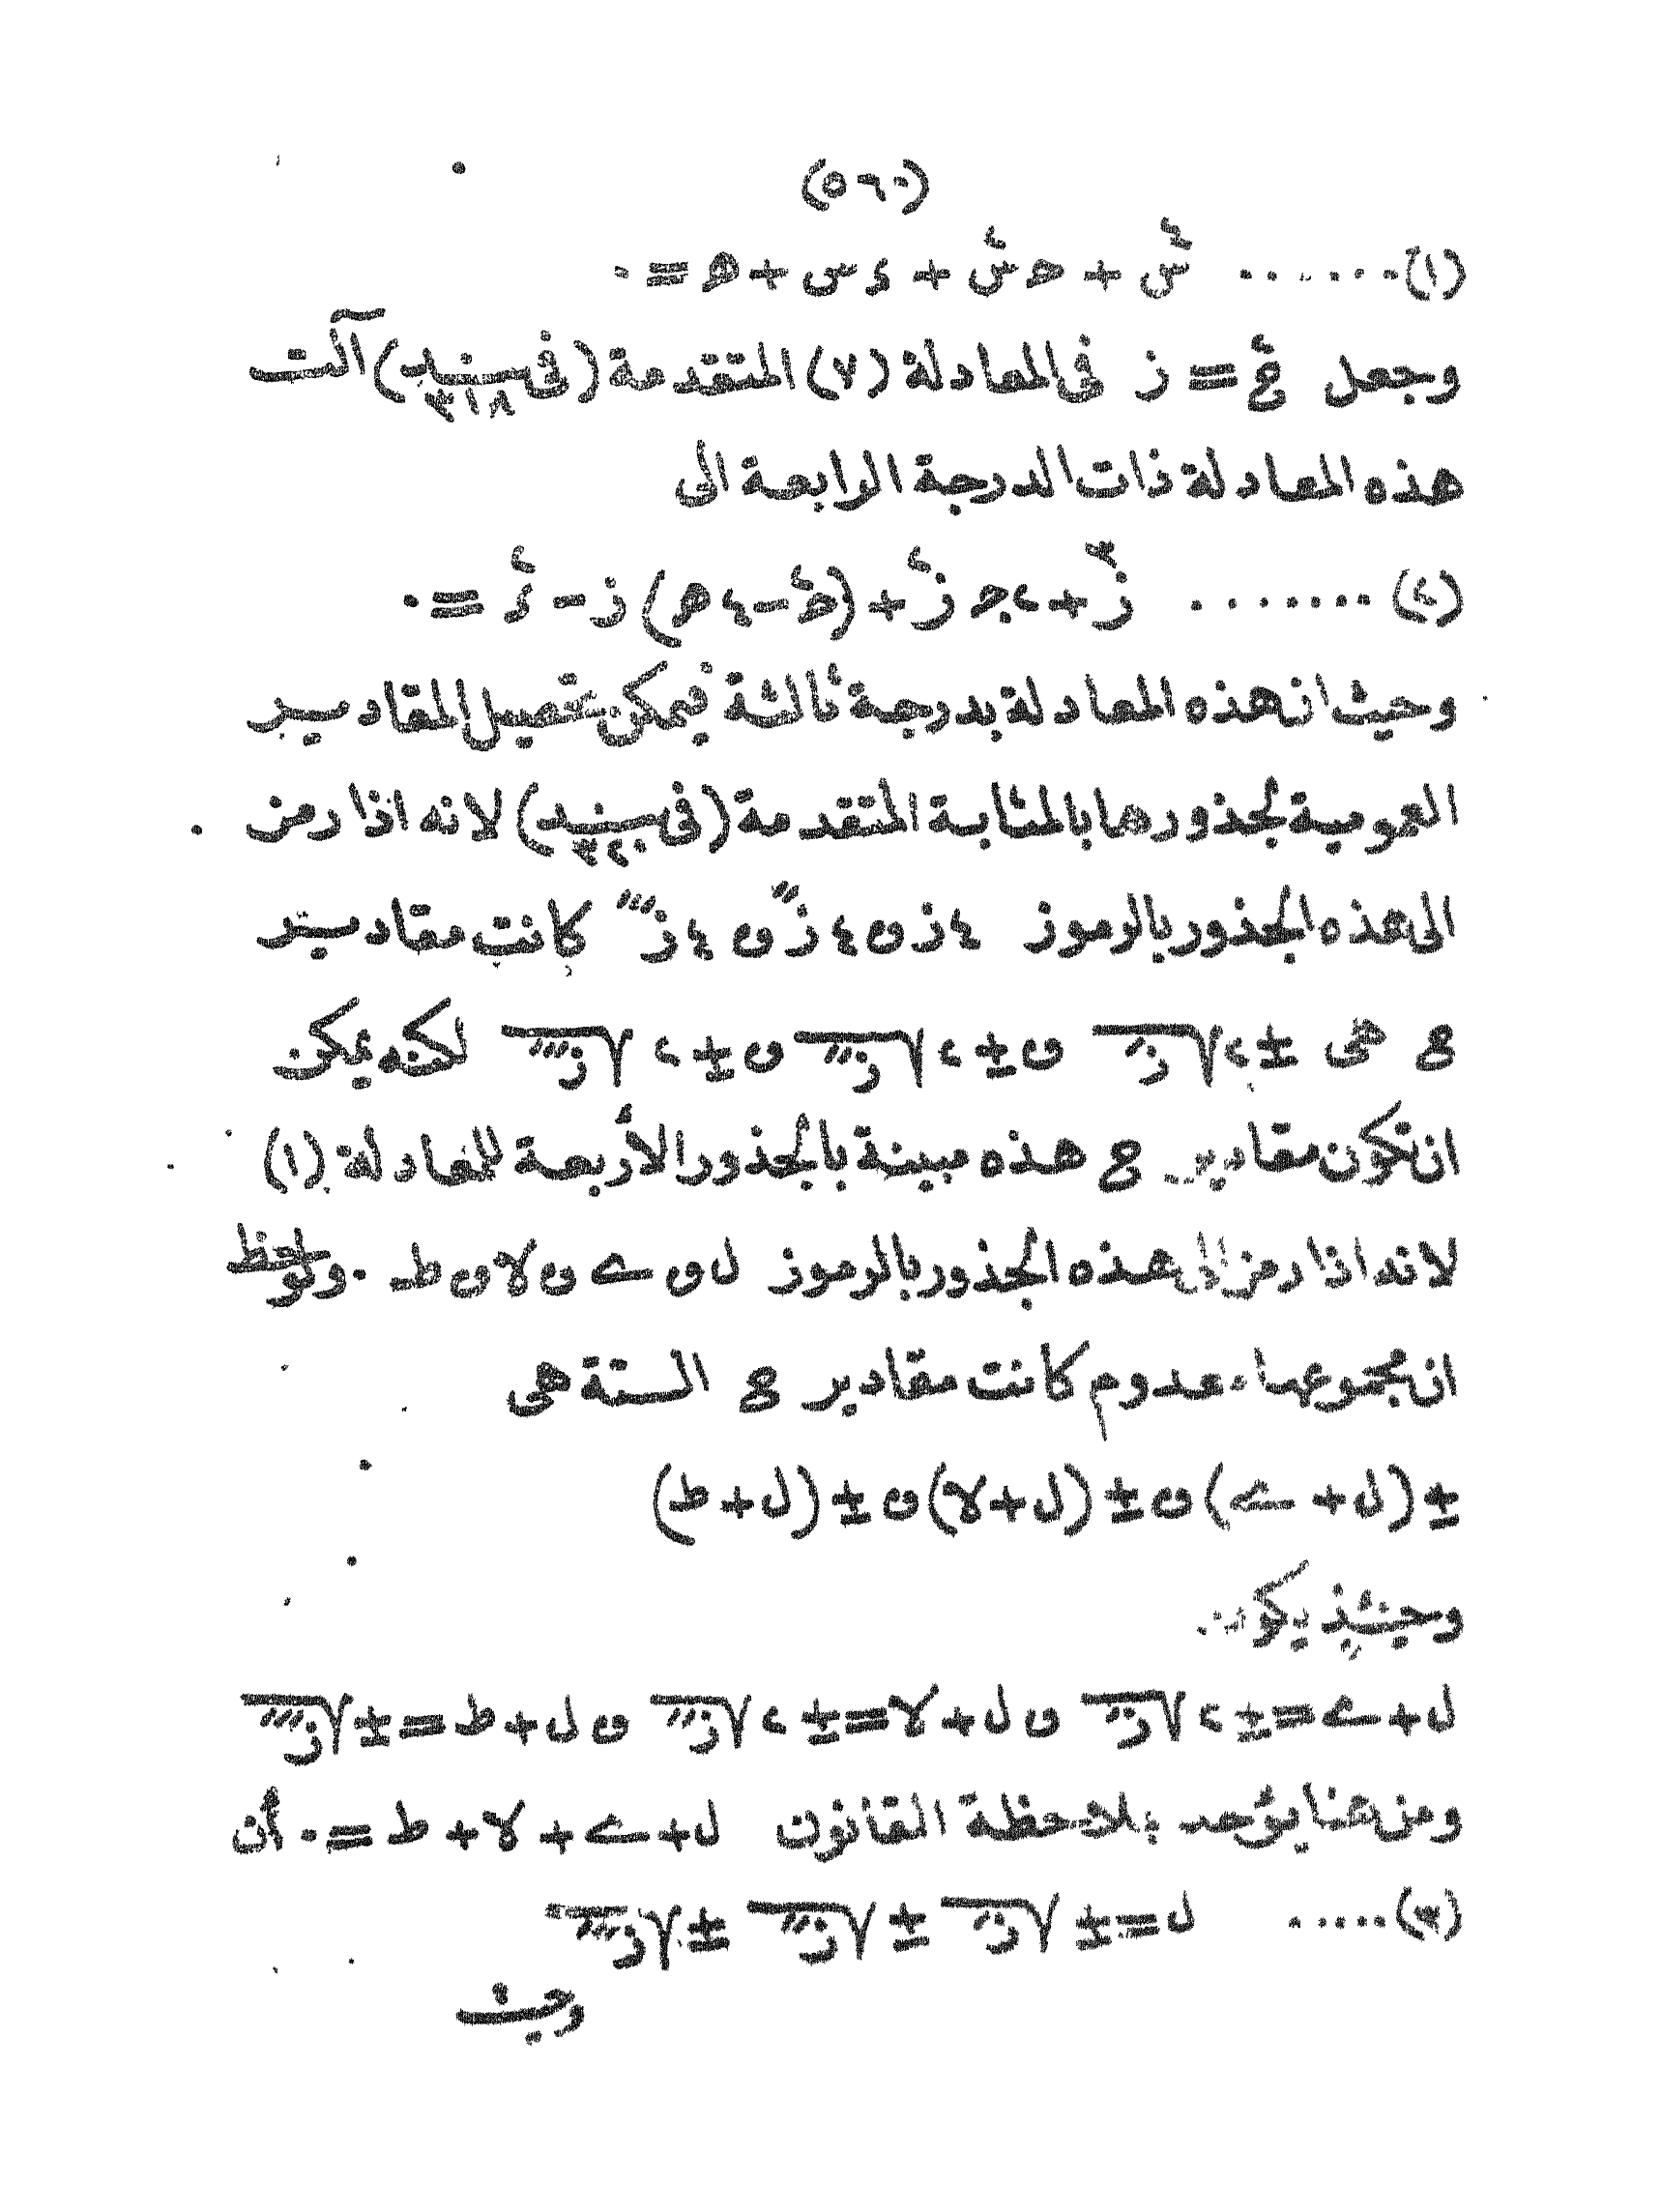 (٥٦٠)
(١) ....... س٤ + حس٢ + ءس + ه = ٠
وجعل ع٢ = ز فى المعادلة (٧) المتقدمة (فى بند ٣١٨) آلت
هذه المعادلة ذات الدرجة الرابعة الى
(٢) ....... ز٣ + ٢حز٢ + (ح٢ - ٤ه) ز - ء٢ = ٠
وحيث ان هذه المعادلة بدرجة ثالثة فيمكن تحصيل المقادير
العمومية لجذورها بالمثابة المتقدمة (فى بند ٣٢٠) لانه اذا رمز
الى هذه الجذور بالرموز ٤ز و ٤ز″ و ٤ز‴ كانت مقادير
ع هى ±٢√ز′ و ±٢√ز″ و ±٢√ز‴ لكنه يمكن
ان تكون مقادير ع هذه مبينة بالجذور الأربعة للمعادلة (١)
لانه اذا رمز الى هذه الجذور بالرموز ل و ے و لا و ط . ولوحظ
ان مجموعها معدوم كانت مقادير ع الستة هى
±(ل + ے) و ±(ل + لا) و ±(ل + ط)
وحينئذ يكون
ل + ے = ±٢√ز′ و ل + لا = ±٢√ز″ و ل + ط = ±√ز‴
ومن هنا يؤخد بملاحظة القانون ل + ے + لا + ط = ٠ أن
(٣) ..... ل = ±√ز′ ± √ز″ ± √ز‴
وحيث